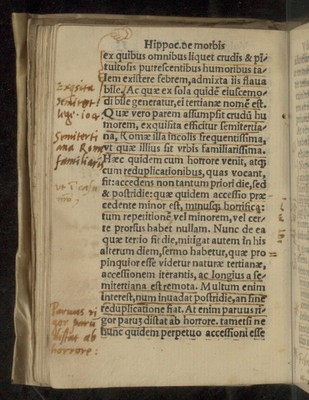 Hippoc. de morbis
ex quibus omnibus liquet crudis & pi-
tuitosis putrescentibus humoribus ta-
lem existere febrem, admixta iis flaua
bile. Ac quæ ex sola quidē eiuscemo-
di bile generatur, ei tertianæ nomē est.
Quæ vero parem assumpsit crudū hu
morem, exquisita efficitur semitertia-
na, Romæ illa incolis frequentissima,
vt quæ illius sit vrbis familiarissima.
Hæc quidem cum horrore venit, atq;
cum reduplicationibus, quas vocant,
fit: accedens non tantum priori die, sed
& postridie: quæ quidem accessio præ
cedente minor est, minusq; horrifica:
tum repetitionē vel minorem, vel cer-
te prorsus habet nullam. Nunc de ea
quæ tertio fit die, mitigat autem in his
alterum diem, sermo habetur, quæ pro
pinquior esse videtur naturæ tertianæ,
accessionem iterantis, ac longius a se-
mitertiana est remota. Multum enim
interest, num inuadat postridie, an sine
reduplicatione fiat. At enim paruus ri-
gor parū distat ab horrore. tametsi ne
hunc quidem perpetuo accessioni esse
Exqsita
semitert
Semiterti
ana Romæ
familiaris
Paruus ri
gor parū
distat ab
horrore: